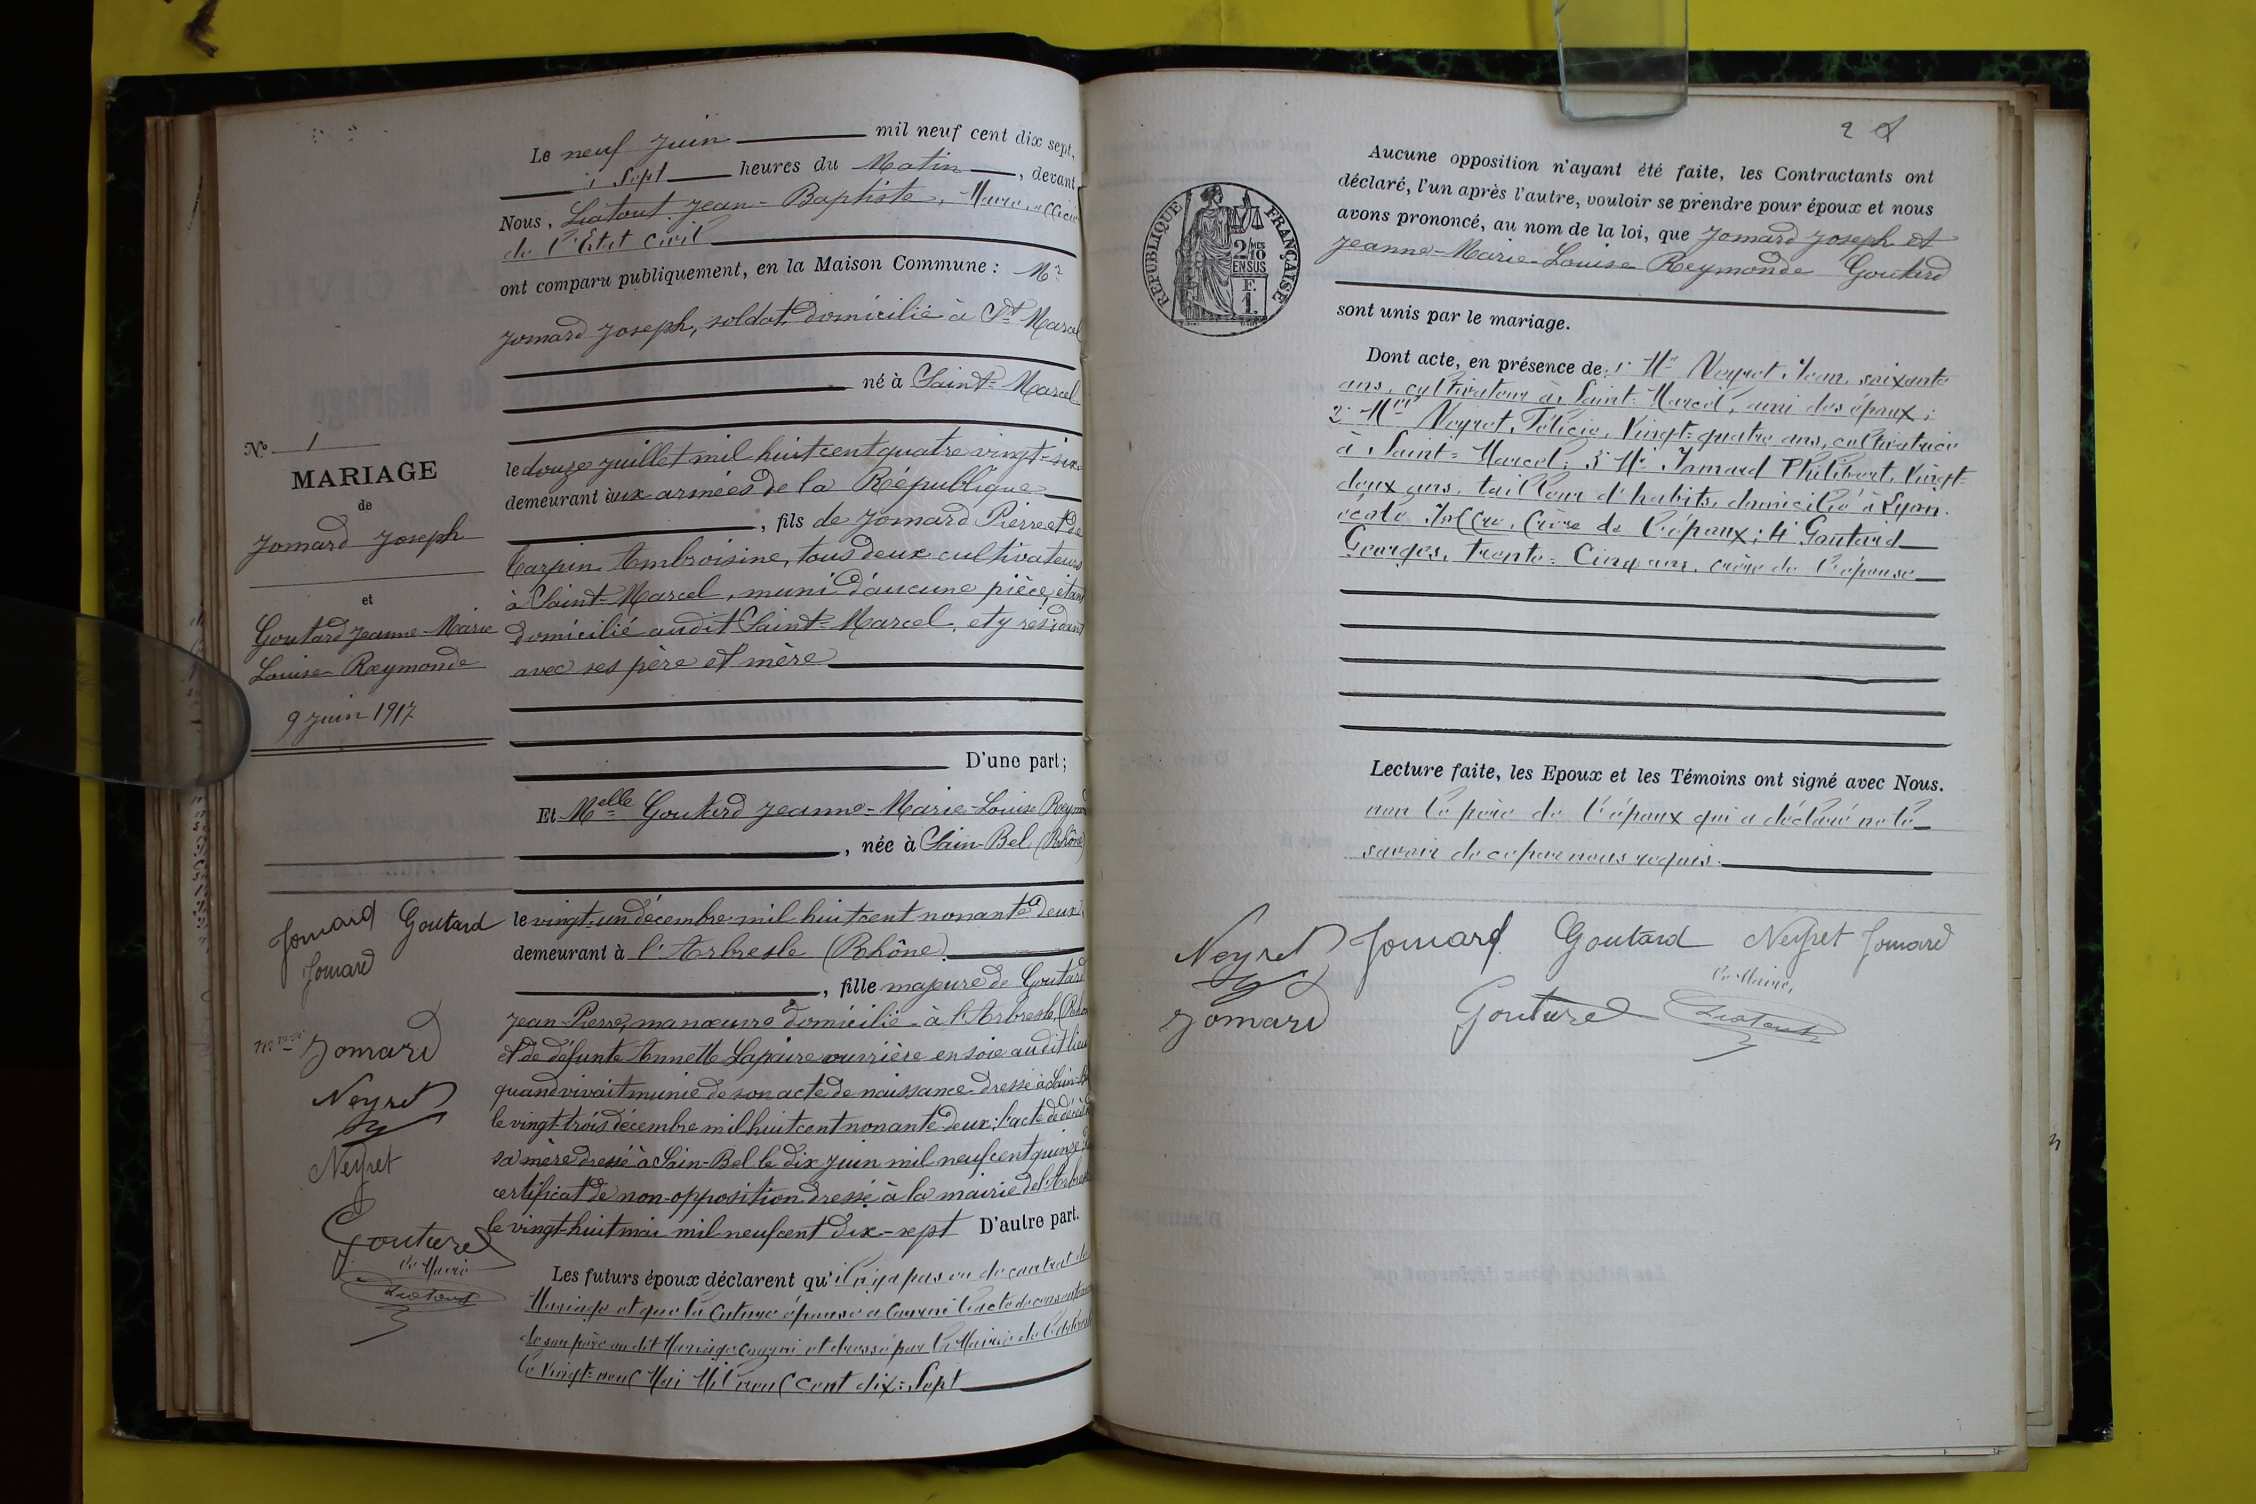 Le neuf Juin mil neuf cent dix sept,
à Sept heures du Matin, devant
Nous, Liatout Jean-Baptiste, Maire, officier
de l'Etat Civil
ont comparu publiquement, en la Maison Commune : Mr
Jomard Joseph, soldat, domicilié à St Marcel
né à Saint-Marcel
le douze juillet mil huit cent quatre vingt-six
demeurant aux armées de la République
, fils de Jomard Pierre et de
Carpin Ambroisine, tous deux cultivateurs
à Saint-Marcel, muni d'aucune pièce, étant
domicilié audit Saint-Marcel, et y résidant
avec ses père et mère
D'une part;
Et Melle Goutard Jeanne-Marie-Louise Reymonde
, née à Sain-Bel (Rhône)
le vingt-un décembre mil huit cent nonante deux
demeurant à l'Arbresle (Rhône).
, fille majeure de Goutard
Jean-Pierre, manœuvre domicilié à l'Arbresle, (Rhône
et de défunte Annette Lapaire ouvrière en soie audit lieu
quand vivait munie de son acte de naissance dressé à Sain-Bel
le vingt-trois décembre mil huit cent nonante deux; l'acte de décès de
sa mère dressé à Sain-Bel le dix juin mil neuf cent quinze, du
certificat de non-opposition dressé à la mairie de l'Arbresle
le vingt-huit mai mil neuf cent dix-sept D'autre part.
Les futurs époux déclarent qu'il n'y a pas eu de contrat de
Mariage et que la future épouse a fourni l'acte de consentement
de son père au dit Mariage et dressé par le Maire de l'Arbresle
le Vingt-neuf Mai Mil neuf cent dix-Sept
N° 1
MARIAGE
de
Jomard Joseph
et
Goutard Jeanne-Marie
Louise Reymonde
9 Juin 1917
Jomard Goutard
Jomard
Jomard
Neyret
Neyret
Goutard
Le Maire
Liatout
2
RÉPUBLIQUE FRANÇAISE
2/10MES
EN SUS
F.
1.
Aucune opposition n'ayant été faite, les Contractants ont
déclaré, l'un après l'autre, vouloir se prendre pour époux et nous
avons prononcé, au nom de la loi, que Jomard Joseph et
Jeanne-Marie-Louise Reymonde Goutard
sont unis par le mariage.
Dont acte, en présence de 1° Mr Neyret Jean, soixante
ans, cultivateur à Saint-Marcel, ami des époux;
2° Melle Neyret, Félicie, Vingt-quatre ans, cultivatrice
à Saint-Marcel; 3° Mr Jomard Philibert, Vingt-
deux ans, tailleur d'habits, domicilié à Lyon.
école Joffre, frère de l'époux; 4° Goutard
Georges, trente-Cinq ans, frère de l'épouse
Lecture faite, les Epoux et les Témoins ont signé avec Nous.
non le père de l'époux qui a déclaré ne le
savoir de ce par nous requis.
Neyret Jomard Goutard Neyret Jomard
Le Maire,
Jomard Goutard Liatout